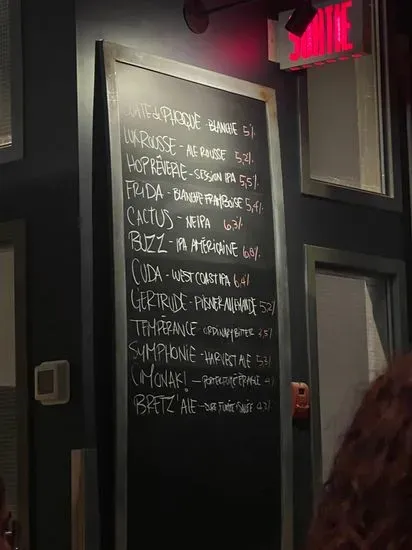 SORTIE
DU PHOQUE - BLANCHE 5%
LUXROUSSE - ALE ROUSSE 5,2%
HOP RÊVERIE - SESSION IPA 5,5%
FRIDA - BLANCHE FRAMBOISE 5,4%
CACTUS - NEIPA 6,3%
BUZZ - IPA AMÉRICAINE 6,8%
CUDA - WEST COAST IPA 6,4%
GERTRUDE - PILSNER ALLEMANDE 5,2%
TEMPÉRANCE - ORDINARY BITTER 3,5%
SYMPHONIE - HARVEST ALE 5,3%
CIMONAKI
BRETZ'ALE